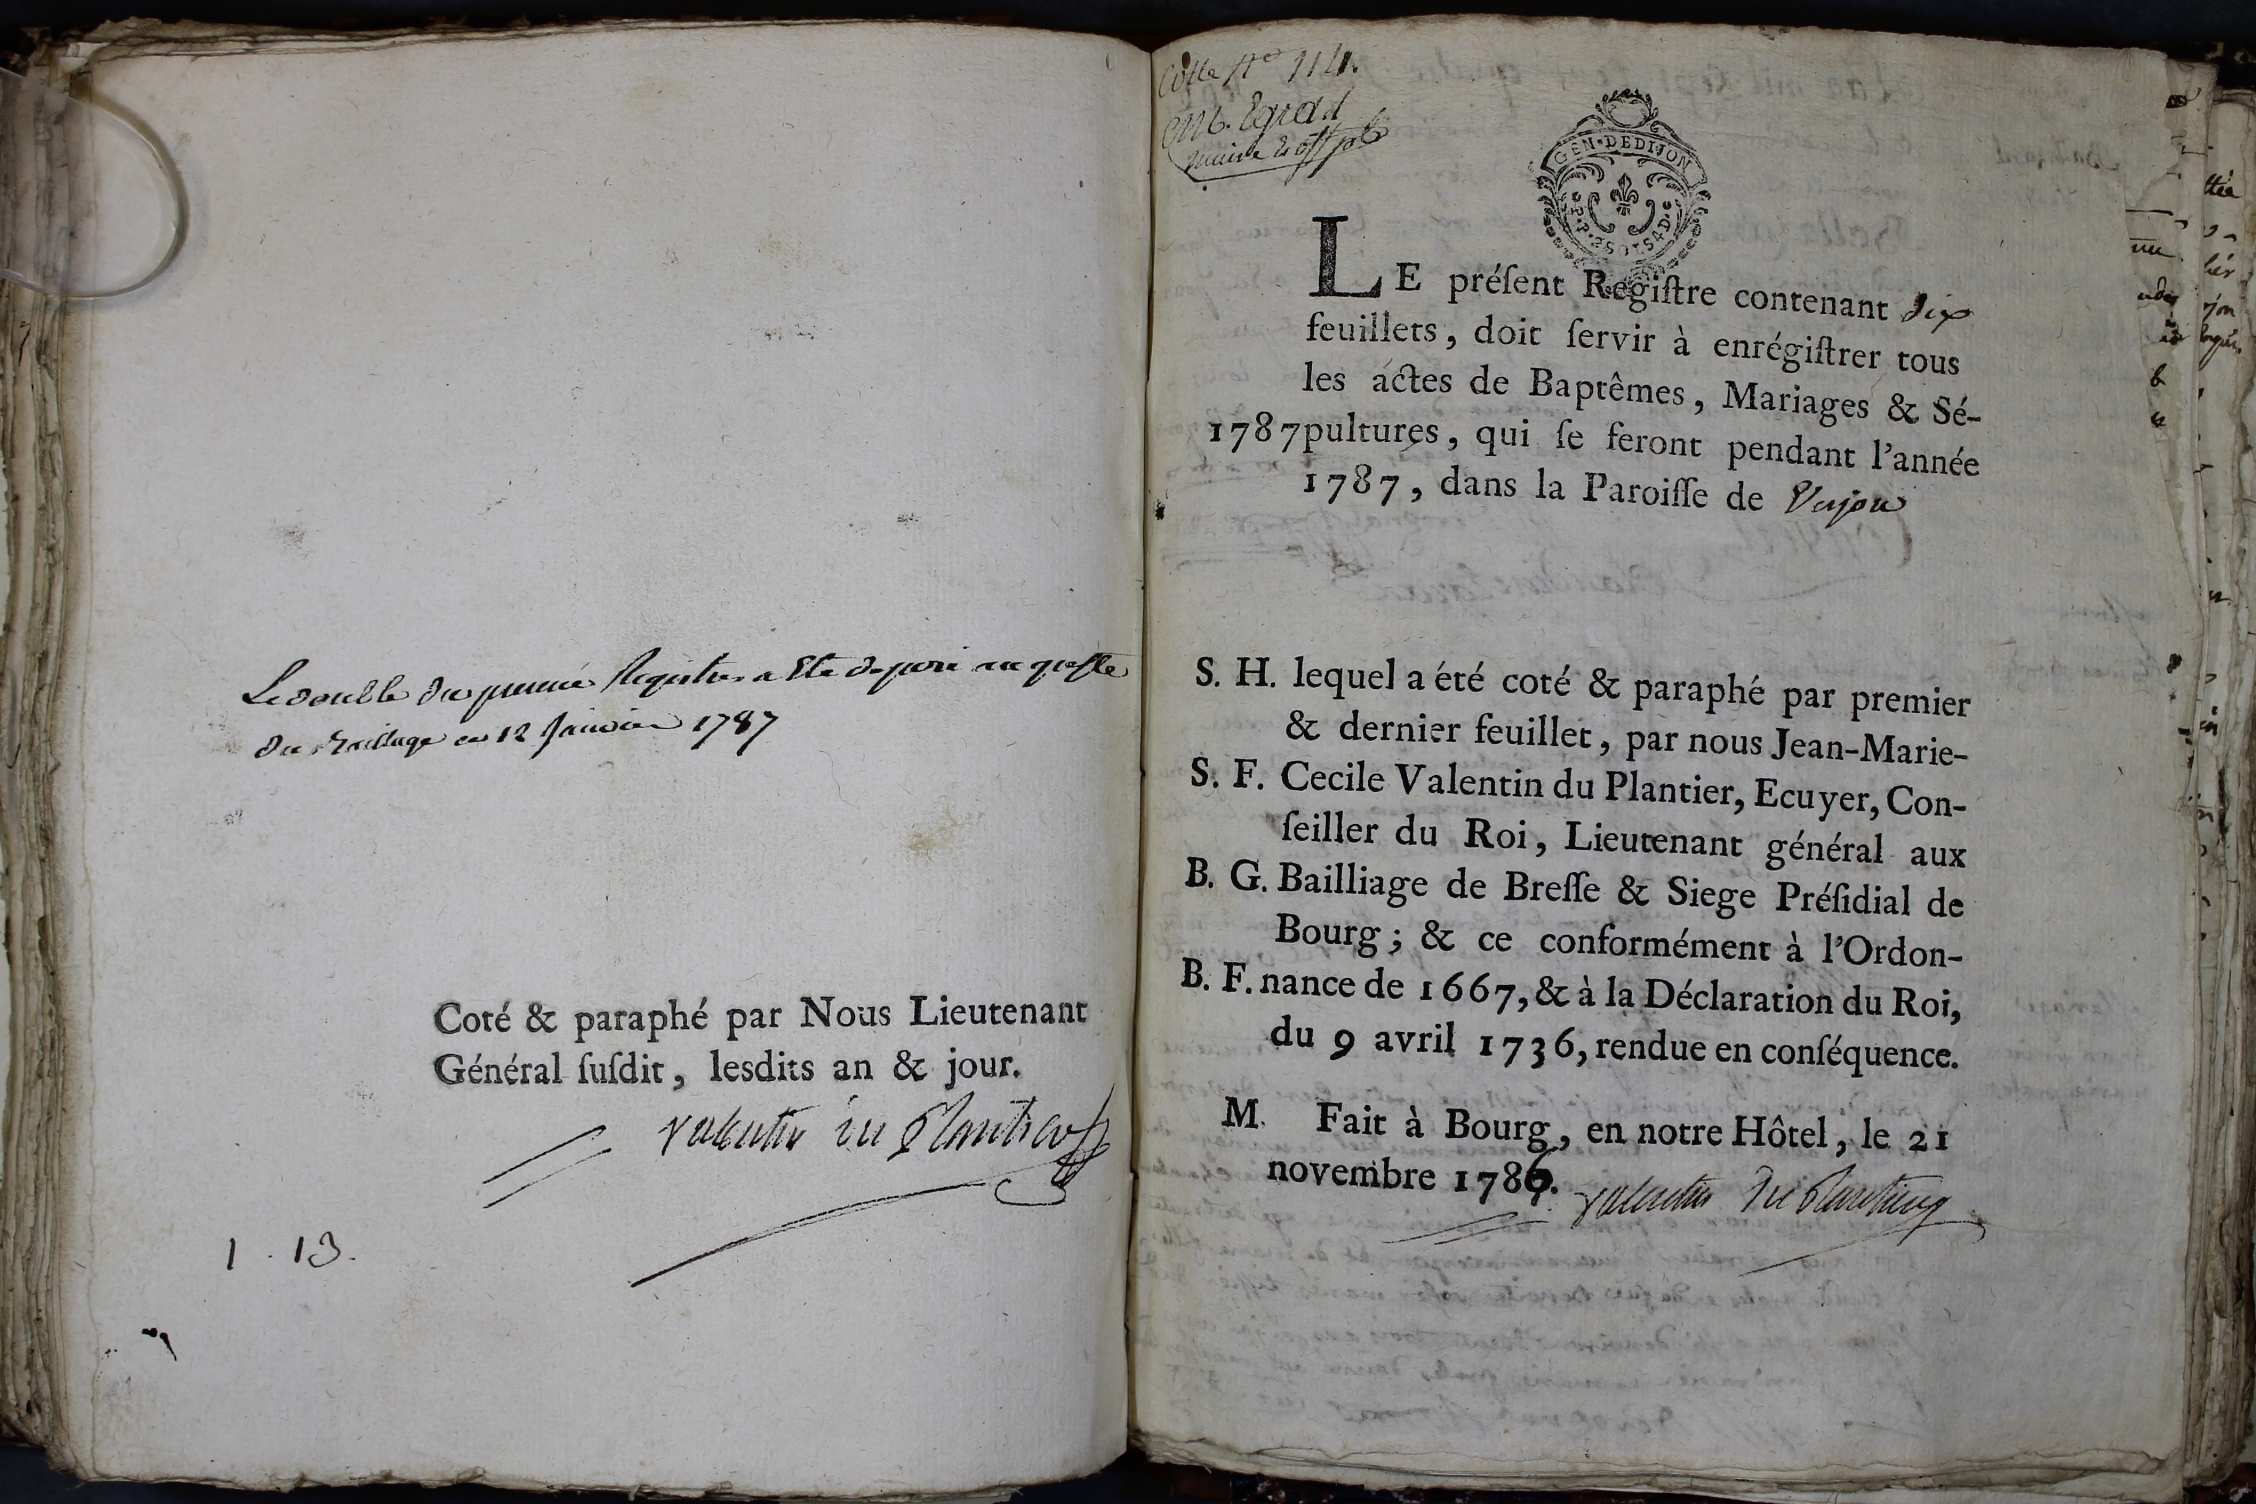 Le double du présent Registre a été déposé au greffe
du Bailliage ce 12 Janvier 1787
Coté & paraphé par Nous Lieutenant
Général ſuſdit, lesdits an & jour.
Valentin du Plantier
1 . 13.
Cotte 114.
maire
GEN·DEDIJON
LE préſent Regiſtre contenant dix
feuillets, doit ſervir à enrégiſtrer tous
les actes de Baptêmes, Mariages & Sé-
1787 pultures, qui ſe feront pendant l'année
1787, dans la Paroiſſe de Verjon
S. H. lequel a été coté & paraphé par premier
& dernier feuillet, par nous Jean-Marie-
S. F. Cecile Valentin du Plantier, Ecuyer, Con-
ſeiller du Roi, Lieutenant général aux
B. G. Bailliage de Breſſe & Siege Préſidial de
Bourg; & ce conformément à l'Ordon-
B. F. nance de 1667, & à la Déclaration du Roi,
du 9 avril 1736, rendue en conſéquence.
M. Fait à Bourg, en notre Hôtel, le 21
novembre 1786.
Valentin du Plantier